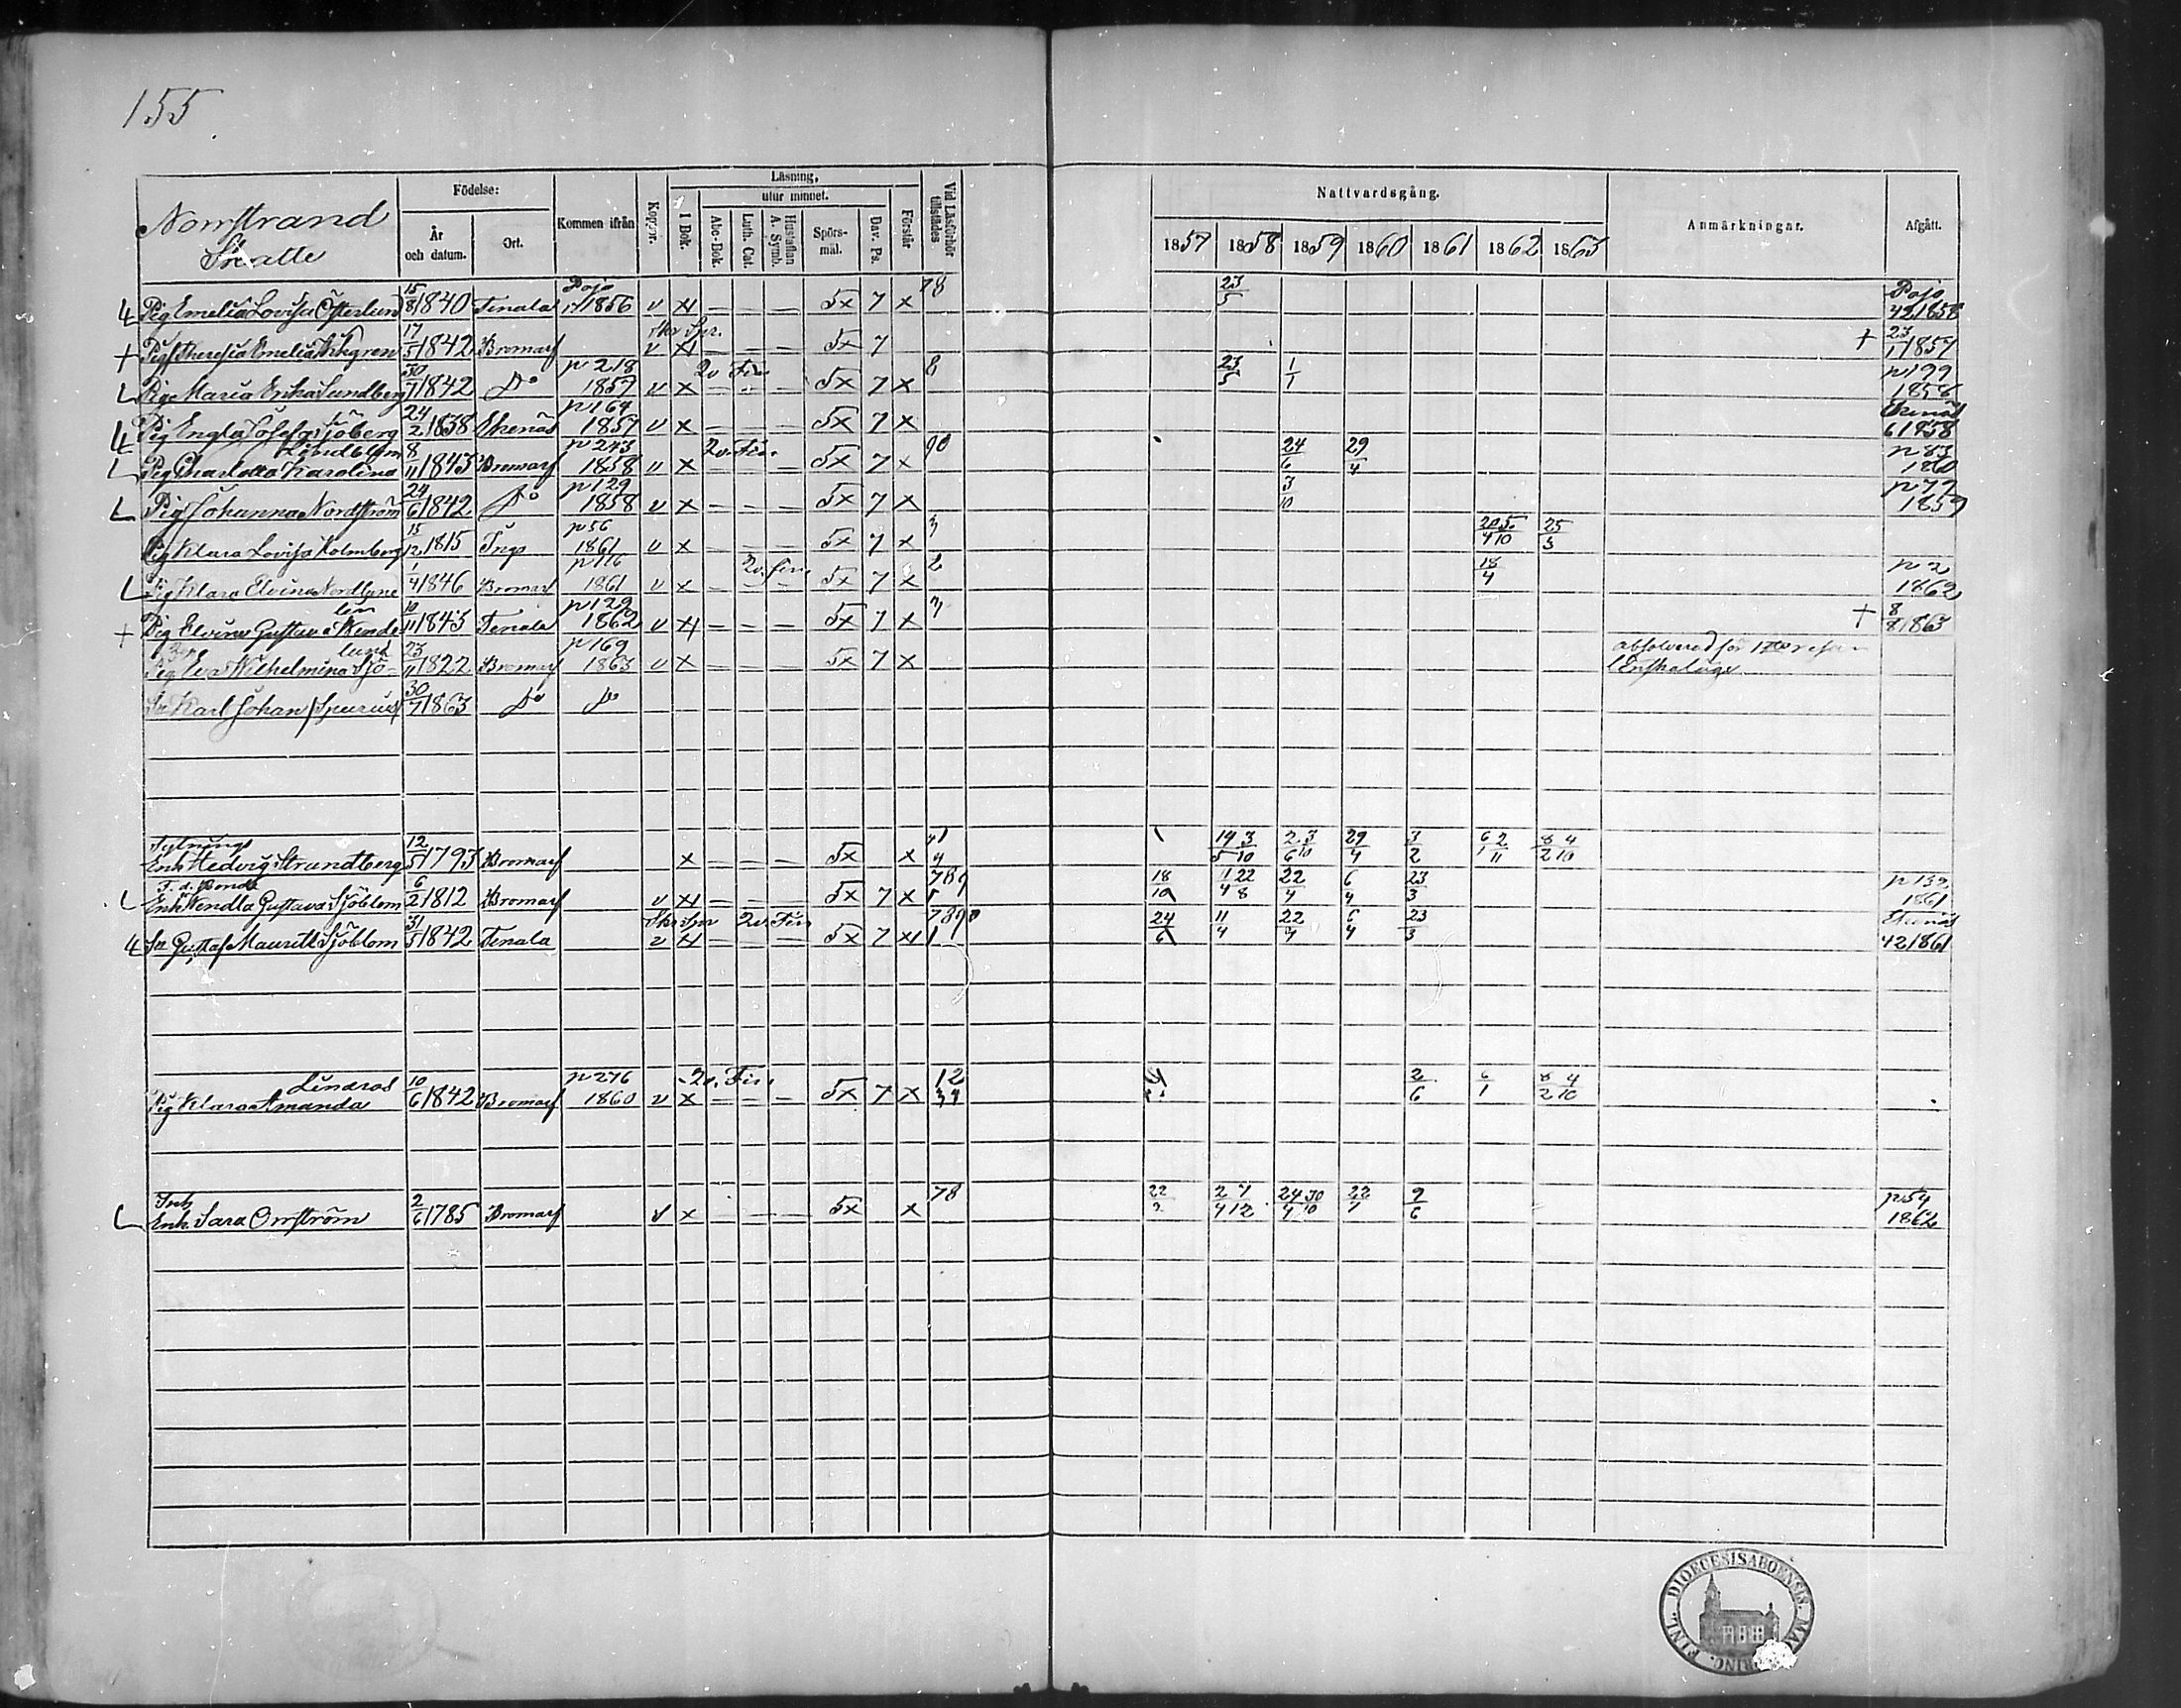 155
Norrstrand
Skatte
Födelse:
År och datum.
Ort.
Kommen ifrån
Koppor.
Läsning,
utur minnet.
I Bok.
Abc-Bok.
Luth. Cat.
Hustaflan A. Symb.
Spörs-mål.
Dav. Ps.
Förstår
Vid Läsförhör tillstädes
Nattvardsgång.
1857 1858 1859 1860 1861 1862 1863
Anmärkningar.
Afgått.
Pig Emelia Lovisa Österlund 15/8 1840 Tenala Pojo 1856 v x — — — 5x 7 x 78 23/5 Pojo 42 1858
+ Pig Theresia Amelia 17/5 1842 Bromarf v x — — — 5x 7 + 23/1 1857
Pig Maria Erika Sundberg 30/7 1842 Do p 218 1857 v x — — — 5x 7 x 8 23/5 1/1 p 199 1858
Pig Engla Josefa Sjöberg 24/2 1838 Ekenäs p 164 1857 v x — — — 5x 7 x Ekenäs 6 1858
Pig Charlotta Karolina Lindblom 8/11 1843 Bromarf p 243 1858 v x — — — 5x 7 x 90 24/6 29/4 p 83 1860
Pig Johanna Nordström 24/6 1842 Do p 129 1858 v x — — — 5x 7 x 3/10 p 79 1859
Pig Klara Lovisa Holmberg 15/12 1815 Ingo p 56 1861 v x — — — 5x 7 x 3 20/4 5/10 25/3
Pig Klara Elvina 1/4 1846 Bromarf p 116 1861 v x — — — 5x 7 x 2 18/4 p 2 1862
+ Pig Elvina Gustava 10/11 1843 Tenala p 129 1862 v x — — — 5x 7 x 3 + 8/8 1863
Pig Eva Wilhelmina Sjölund 23/11 1822 Bromarf p 169 1863 v x — — — 5x 7 x absolverad för
Sn Karl Johan /Spurius/ 30/7 1863 Do Do
Sytnings
Enk Hedvig Strandberg 12/5 1793 Bromarf x — — — 5x x 14/5 3/10 2/6 3/10 29/4 3/2 6/1 2/11 8/2 4/10
F. d. Bonde
Enk Wendla Gustava Sjöblom 6/2 1812 Bromarf v x — — — 5x 7 x 789 18/10 11/4 22/8 22/4 6/4 23/3 p 139 1861
Sn Gustaf Mauritz Sjöblom 31/5 1842 Tenala v x — — — 5x 7 x 7890 24/6 11/4 22/4 6/4 23/3 Ekenäs 42 1861
Lindroos
Pig Klara Amanda 10/6 1842 Bromarf p 276 1860 v x — — — 5x 7 x 12 34 2/6 6/1 8/2 4/10
Inh
Enk Sara Orrström 2/6 1785 Bromarf v x — — — 5x x 78 22/2 2/4 7/12 24/4 30/10 22/4 9/6 p 54 1862
FINL. DIOECESIS ABOENSIS. MA